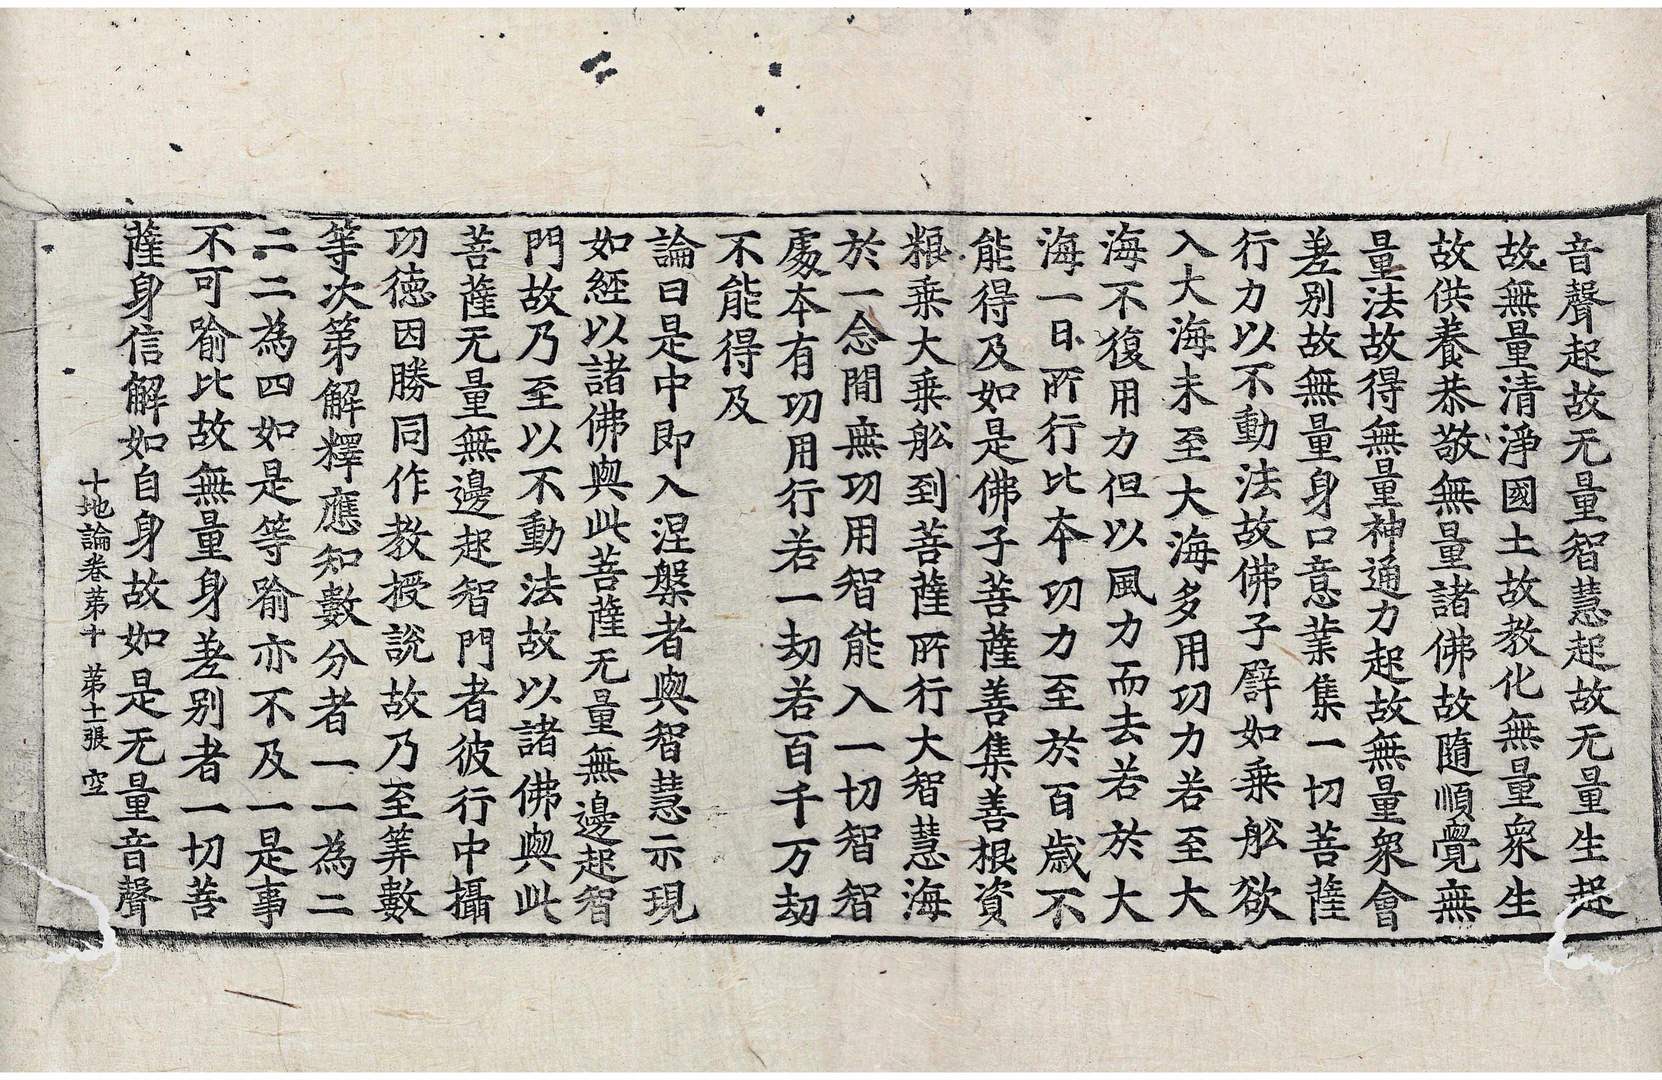 音聲起故无量智慧起故无量生起
故無量清淨國土故教化無量衆生
故供養恭敬無量諸佛故隨順覺無
量法故得無量神通力起故無量衆會
差別故無量身口意業集一切菩薩
行力以不動法故佛子譬如乘舩欲
入大海未至大海多用功力若至大
海不復用力但以風力而去若於大
海一日所行比本功力至於百歲不
能得及如是佛子菩薩善集善根資
粮乗大乗舩到菩薩所行大智慧海
於一念間無功用智能入一切智智
處本有功用行若一劫若百千万劫
不能得及
論曰是中即入涅槃者與智慧示現
如經以諸佛與此菩薩无量無邊起智
門故乃至以不動法故以諸佛與此
菩薩无量無邊起智門者彼行中攝
功徳因勝同作教授說故乃至筭數
等次第解釋應知數分者一一為二
二二為四如是等喻亦不及一是事
不可喻比故無量身差別者一切菩
薩身信解如自身故如是无量音聲
十地論卷第十 第十一張 空